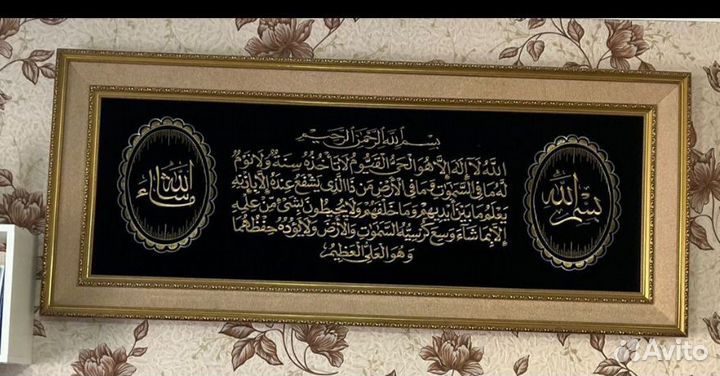 بسم الله الرحمن الرحيم
الله لا إله إلا هو الحي القيوم لا تأخذه سنة ولا نوم
له ما في السموت وما في الأرض من ذا الذي يشفع عنده إلا بإذنه
يعلم ما بين أيديهم وما خلفهم ولا يحيطون بشئ من علمه
إلا بما شاء وسع كرسيه السموت والأرض ولا يؤده حفظهما
وهو العلي العظيم
بسم الله
ما شاء الله
Avito